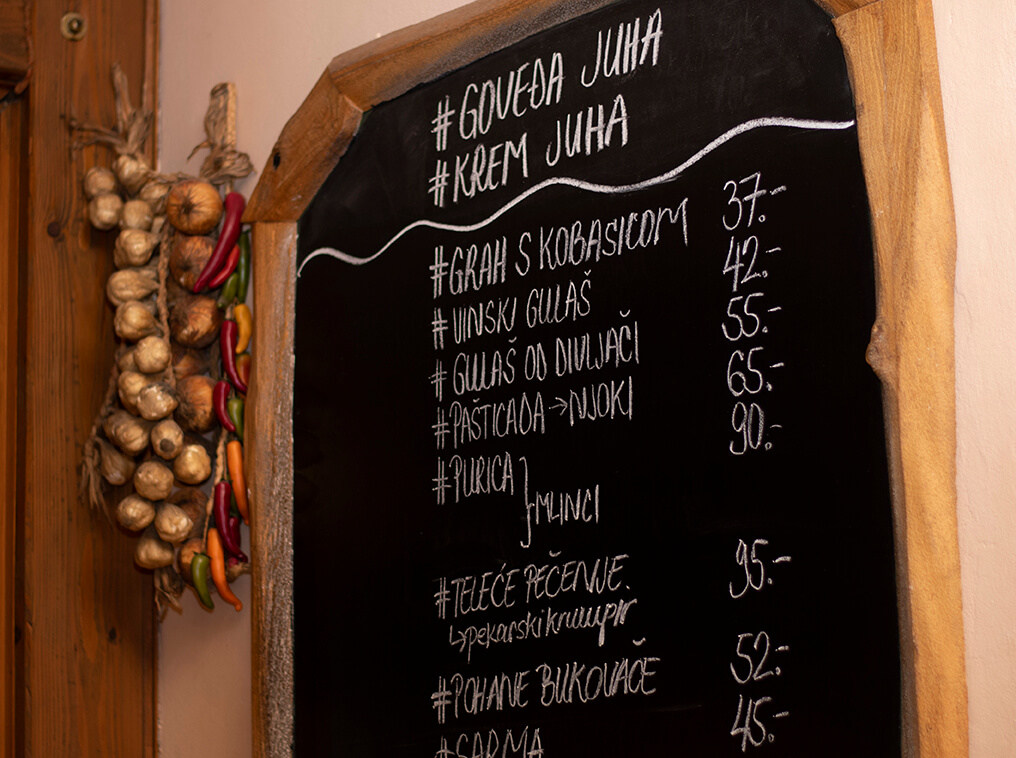 #GOVEĐA JUHA
#KREM JUHA
#GRAH S KOBASICOM 37.-
#VINSKI GULAŠ 42.-
#GULAŠ OD DIVLJAČI 55.-
#PAŠTICADA→NJOKI 65.-
#PURICA 90.-
}MLINCI
#TELEĆE PEČENJE. 95.-
↳pekarski krumpir
#POHANE BUKOVAČE 52.-
#SARMA 45.-